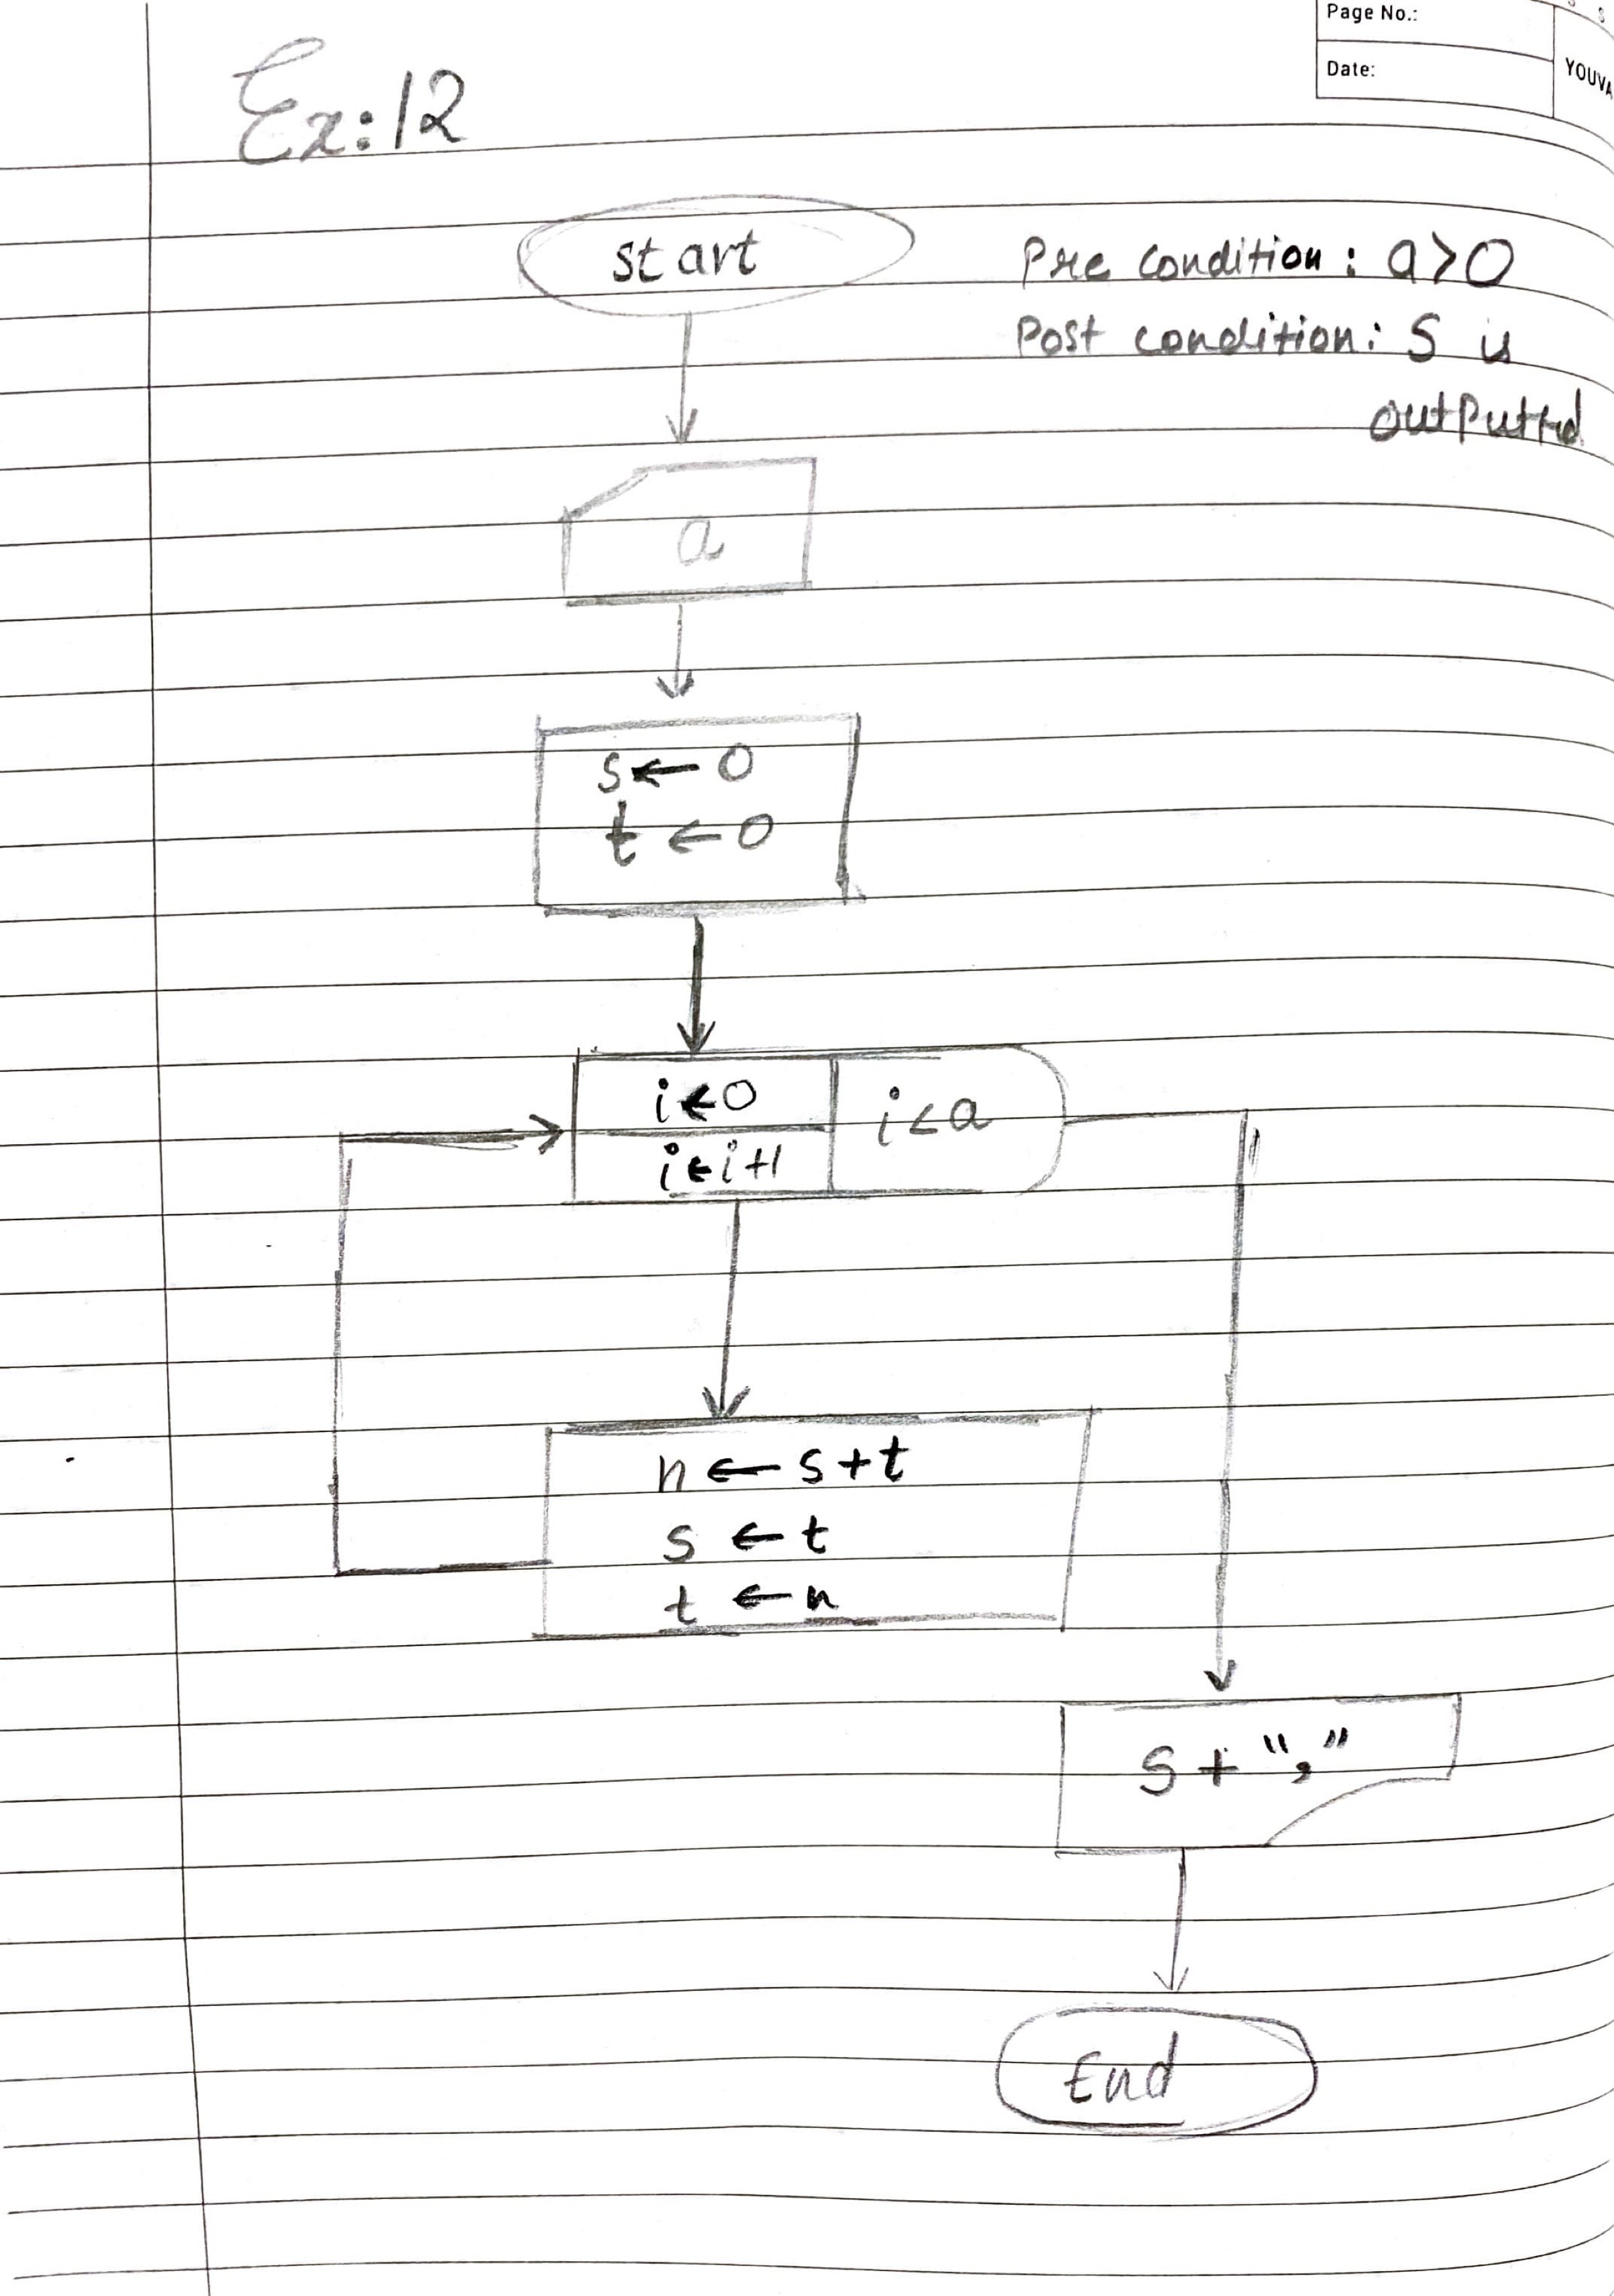 Page No.:
Date:
YOUVA
Ex:12
start
Pre condition: a>0
Post condition: S is
outputted
a
s← 0
t ← 0
i←0
i<a
i←i+1
n ← s+t
s ← t
t ← n
S + ","
End